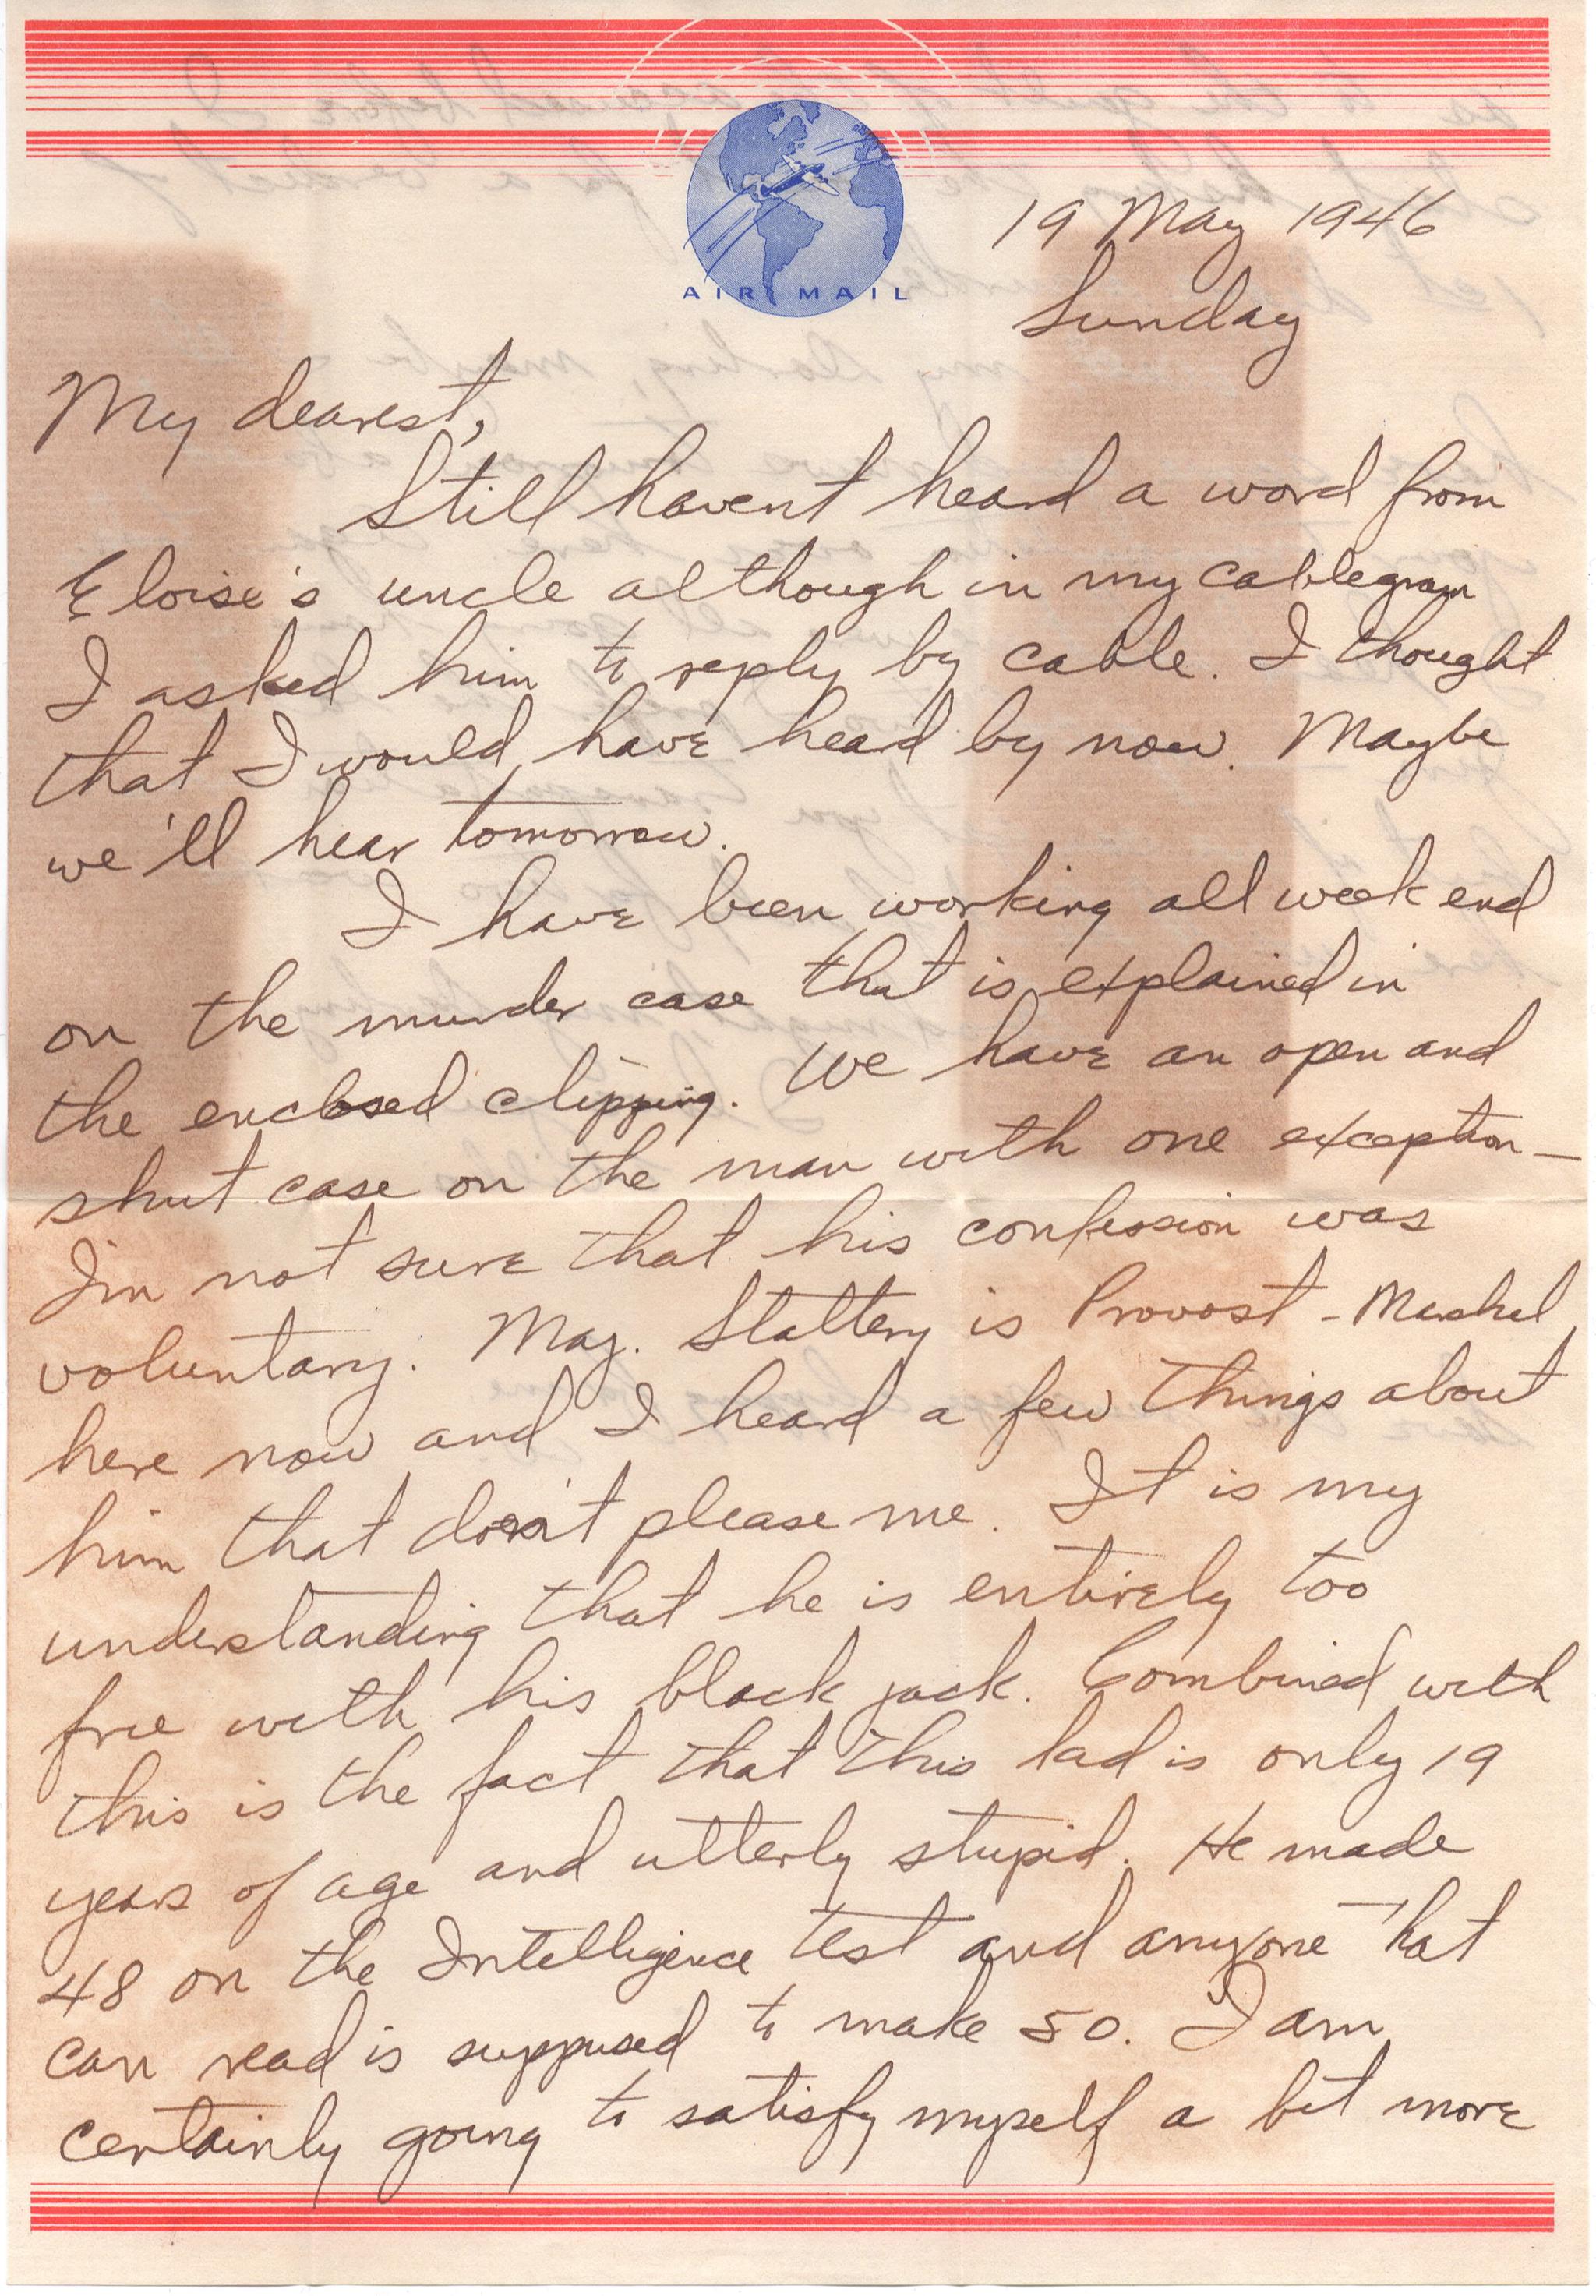 AIR MAIL
19 May 1946
Sunday
My dearest,
Still havent heard a word from
Eloise's uncle although in my cablegram
I asked him to reply by cable. I thought
that I would have head by now. Maybe
we'll hear tomorrow.
I have been working all week end
on the murder case that is explained in
the enclosed clipping. We have an open and
shut case on the man with one exception —
I'm not sure that his confession was
voluntary. Maj. Slattery is Provost - Marshal
here now and I heard a few things about
him that don't please me. It is my
understanding that he is entirely too
free with his black jack. Combined with
this is the fact that this lad is only 19
years of age and utterly stupid. He made
48 on the Intelligence test and anyone that
can read is supposed to make 50. I am
certainly going to satisfy myself a bit more